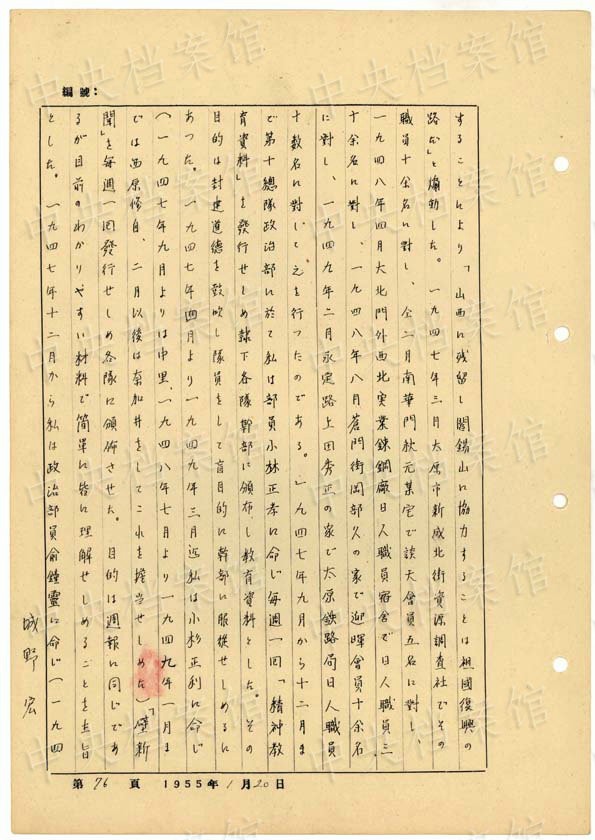 編號：
することにより「山西に残留し閻錫山に協力することは祖國復興の
路だ」と煽動した。一九四七年三月太原市新成北街資源調査社でその
職員十余名に対し、仝二月南華門秋元某宅で談天會員五名に対し、
一九四八年四月大北門外西北実業錬鋼廠日人職員宿舎で日人職員三
十余名に対し、一九四八年八月蒼門街岡部久の家で迎暉會員十余名
に対し、一九四九年二月永定路上田秀正の家で太原鉄路局日人職員
十数名に対して之を行ったのである。一九四七年九月から十二月ま
で第十總隊政治部に於て私は部員小林正孝に命じ毎週一回「精神教
育資料」を發行せしめ隷下各隊幹部に頒布し教育資料とした。その
目的は封建道德を鼓吹し隊員をして盲目的に幹部に服従せしめるに
あった。一九四七年四月より一九四九年三月迄私は小杉正利に命じ
（一九四七年九月よりは中里、一九四八年七月より一九四九年一月ま
では西原修自、二月以後は奈加井をしてこれを擔当せしめた）「壁新
聞」を毎週一回發行せしめ各隊に頒佈させた。目的は週報に同じであ
るが目前のわかりやすい材料で簡単に皆に理解せしめることを主旨
とした。一九四七年十二月から私は政治部員俞鐘靈に命じ（一九四
城野宏
第76頁 1955年1月20日
中央档案馆